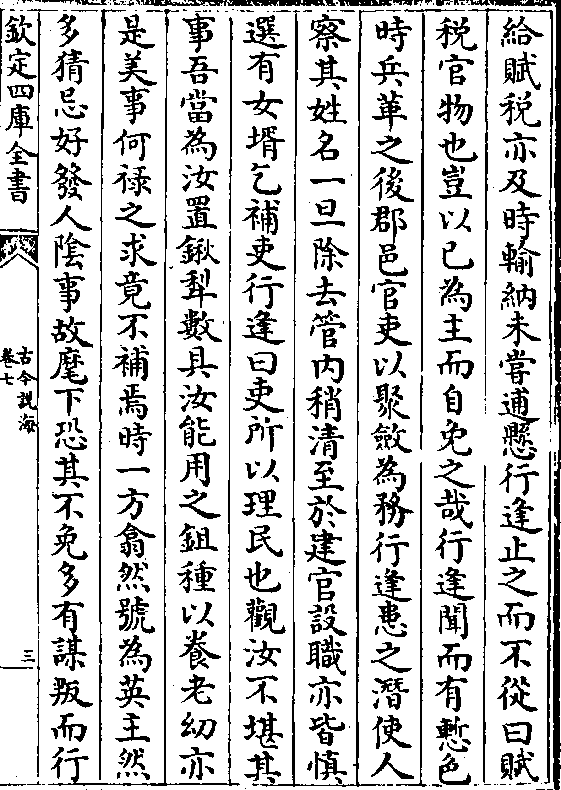 給賦税亦及時輸納未嘗逋懸行逢止之而不從曰賦
税官物也豈以已為主而自免之哉行逢聞而有慙色
時兵革之後郡邑官吏以聚斂為務行逢患之潛使人
察其姓名一旦除去管内稍清至於建官設職亦皆慎
選有女壻乞補吏行逢曰吏所以理民也觀汝不堪其
事吾當為汝置鍬犁數具汝能用之鉏種以養老幼亦
是美事何禄之求竟不補焉時一方翕然號為英主然
多猜忌好發人隂事故麾下恐其不免多有謀叛而行
欽定四庫全書
古今説海
卷七
三